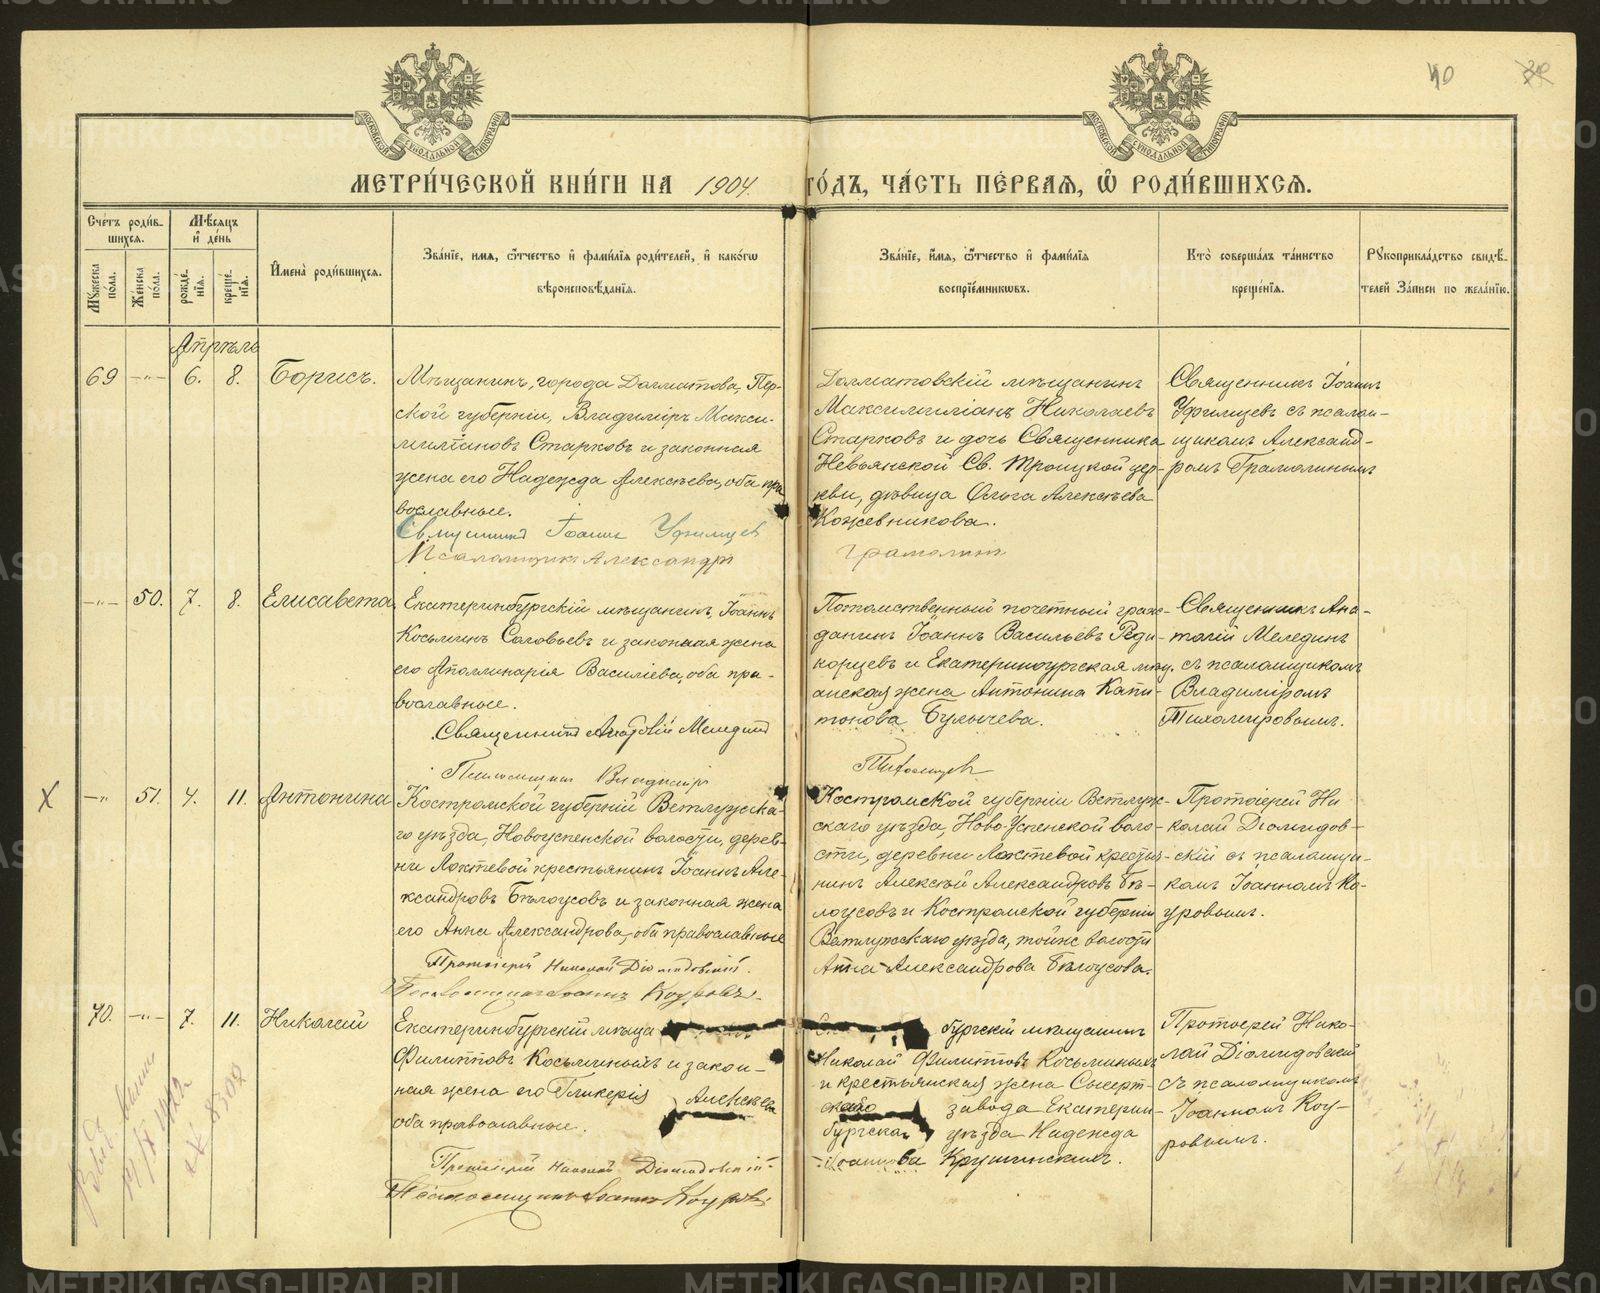 40
МЕТРИ́ЧЕСКОЙ КНИ́ГИ НА 1904. ГО́ДЪ, ЧА́СТЬ ПЕ́РВАЯ, Ѿ РОДИ́ВШИХСЯ.
Сче́тъ роди́в-
шихся.
Му́жеска по́ла.
Же́нска по́ла.
Мѣ́сяцъ и де́нь
рожде́нія.
креще́нія.
Имена̀ роди́вшихся.
Зва́ніе, имя, ѻ҆́тчество и фами́лія роди́телей, и како́гѡ
вѣроисповѣ́данія.
Зва́ніе, и́мя, ѻ҆́тчество и фами́лія
воспріе́мниковъ.
Кто̀ соверша́лъ та́инство
креще́нія.
Рꙋкоприкла́дство свидѣ́-
телей За́писи по жела́нію.
Апрѣль
69 —"— 6. 8. Борисъ.
Мѣщанинъ, города Далматова, Пер-
ской губерніи, Владиміръ Макси-
миліановъ Старковъ и законная
жена его Надежда Алексѣева, оба пра
вославные.
Священникъ Іоаннъ Уфимцев
Псаломщикъ Александръ
Далматовскій мѣщанинъ
Максимиліанъ Николаевъ
Старковъ и дочь Священника
Невьянской Св. Троицкой цер-
кви, дѣвица Ольга Алексѣева
Кожевникова.
Грамолинъ
Священникъ Іоаннъ
Уфимцевъ съ псалом-
щикомъ Александ-
ромъ Грамолинымъ
—"— 50. 7. 8. Елисавета
Екатеринбургскій мѣщанинъ, Іоаннъ
Косьминъ Соловьевъ и законная жена
его Аполлинарія Василіева, оба пра-
вославные.
Священникъ Анатолій Меледин
Псаломщикъ Владиміръ
Потомственный почетный граж-
данинъ Іоаннъ Васильевъ Реди-
корцевъ и Екатеринбургская мѣщ.
анская жена Антонина Капи-
тонова Булычева.
Тихомиров
Священникъ Ана-
толій Мелединъ
съ псаломщикомъ
Владиміромъ
Тихомировымъ.
X —"— 51. 4. 11. Антонина
Костромской губерніи Ветлужска-
го уѣзда, Новоуспенской волости, дерев-
ни Локтевой крестьянинъ Іоаннъ Але-
ксандровъ Бѣлоусовъ и законная жена
его Анна Александрова, оба православные
Протоіерей Николай Діомидовскій.
Псаломщикъ Іоаннъ Коуровъ.
Костромской губерніи Ветлуж-
скаго уѣзда, Ново-Успенской воло-
сти, деревни Локтевой крестья-
нинъ Алексѣй Александровъ Бѣ-
лоусовъ и Костромской губерніи
Ветлужскаго уѣзда, тойже волости
Анна Александрова Бѣлоусова.
Протоіерей Ни
колай Діомидов-
скій съ псаломщи-
комъ Іоанномъ Ко-
уровымъ.
70. —"— 7. 11. Николай
Екатеринбургскій мѣща
Филипповъ Косьминыхъ и закон-
ная жена его Гликерія Алексѣев
оба православные.
Протоіерей Николай Діомидовскій.
Псаломщикъ Іоаннъ Коуровъ
бургскій мѣщанинъ
Николай Филипповъ Косьминыхъ
и крестьянская жена Сысерт-
скаго завода Екатерин-
бургскаго уѣзда Надежда
Іоаннова Крушинскихъ.
Протоіерей Нико-
лай Діомидовскій
съ псаломщикомъ
Іоанномъ Коу-
ровымъ.
METRIKI.GASO-URAL.RU